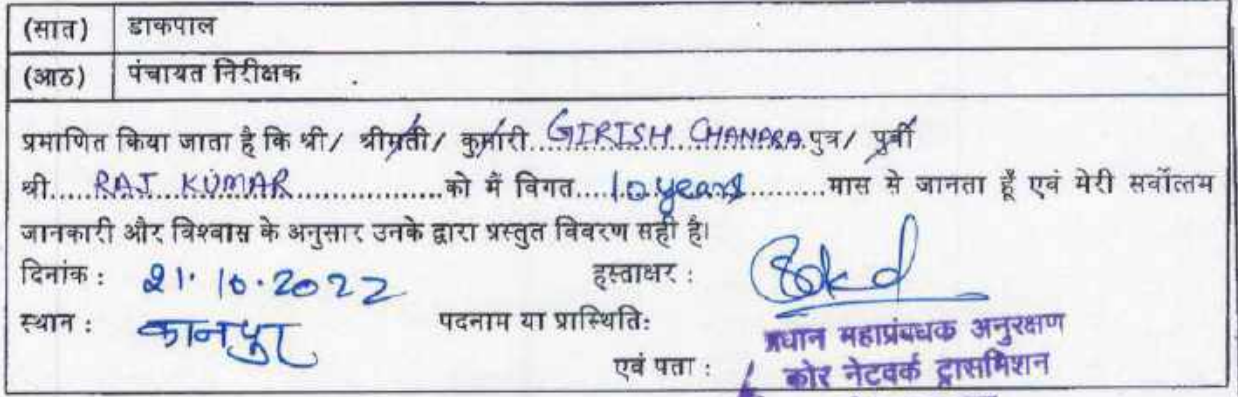 (सात) डाकपाल
(आठ) पंचायत निरीक्षक
प्रमाणित किया जाता है कि श्री/ श्रीमती/ कुमारी GIRISH CHANDRA पुत्र/ पुत्री
श्री RAJ KUMAR को मैं विगत 10 years मास से जानता हूँ एवं मेरी सर्वोत्तम
जानकारी और विश्वास के अनुसार उनके द्वारा प्रस्तुत विवरण सही है।
दिनांक : 21.10.2022 हस्ताक्षर :
स्थान : कानपुर पदनाम या प्रास्थिति:
प्रधान महाप्रंबधक अनुरक्षण
एवं पता : कोर नेटवर्क ट्रासमिशन